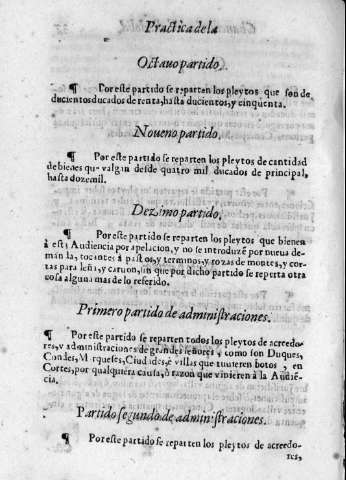 Practica de la
Octauo partido.
¶ Por este partido se reparten los pleytos que son de
ducientos ducados de renta, hasta ducientos, y cinquenta.
Noueno partido.
¶ Por este partido se reparten los pleytos de cantidad
de bienes que valgan desde quatro mil ducados de principal,
hasta doze mil.
Dezimo partido.
¶ Por este partido se reparten los pleytos que bienen
à esta Audiencia por apelacion, y no se introduzẽ por nueua de-
manda, tocantes à pastos, y terminos, y rozas de montes, y cor-
tas para leña, y caruon, sin que por dicho partido se reparta otra
cosa alguna mas de lo referido.
Primero partido de administraciones.
¶ Por este partido se reparten todos los pleytos de acreedo-
res, y administraciones de grandes señores, como son Duques,
Condes, Marqueses, Ciudades, è villas que tuuieren botos, en
Cortes, por qualquiera causa, ò razon que vinieren à la Audiẽ-
cia.
Partido segundo de administraciones.
¶ Por este partido se reparten los pleytos de acreedo-
res,